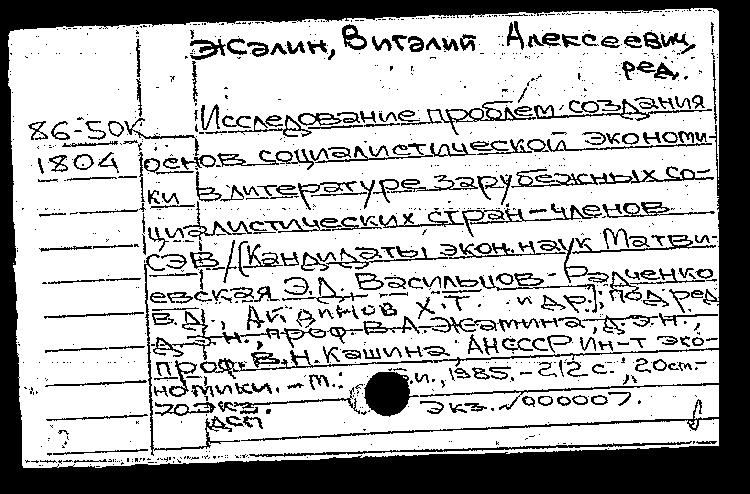 Жалин, Виталий Алексеевич,
ред.
86-50К
1804
Исследование проблем создания
основ социалистической экономи-
ки в литературе зарубежных со-
циалистических стран-членов
СЭВ/[Кандидаты экон.наук Матви-
евская Э.Д., Васильцов-Радченко
В.Д., Х.Т. и др.]; под ред
д.э.н., проф. В.А. Жамина, д.э.н.,
проф. В.Н. Кашина; АН СССР Ин-т эко-
номики. - М.: и., 1985. - 212 с.; 20 см. -
70 экз. Экз. №000007.
ДСП